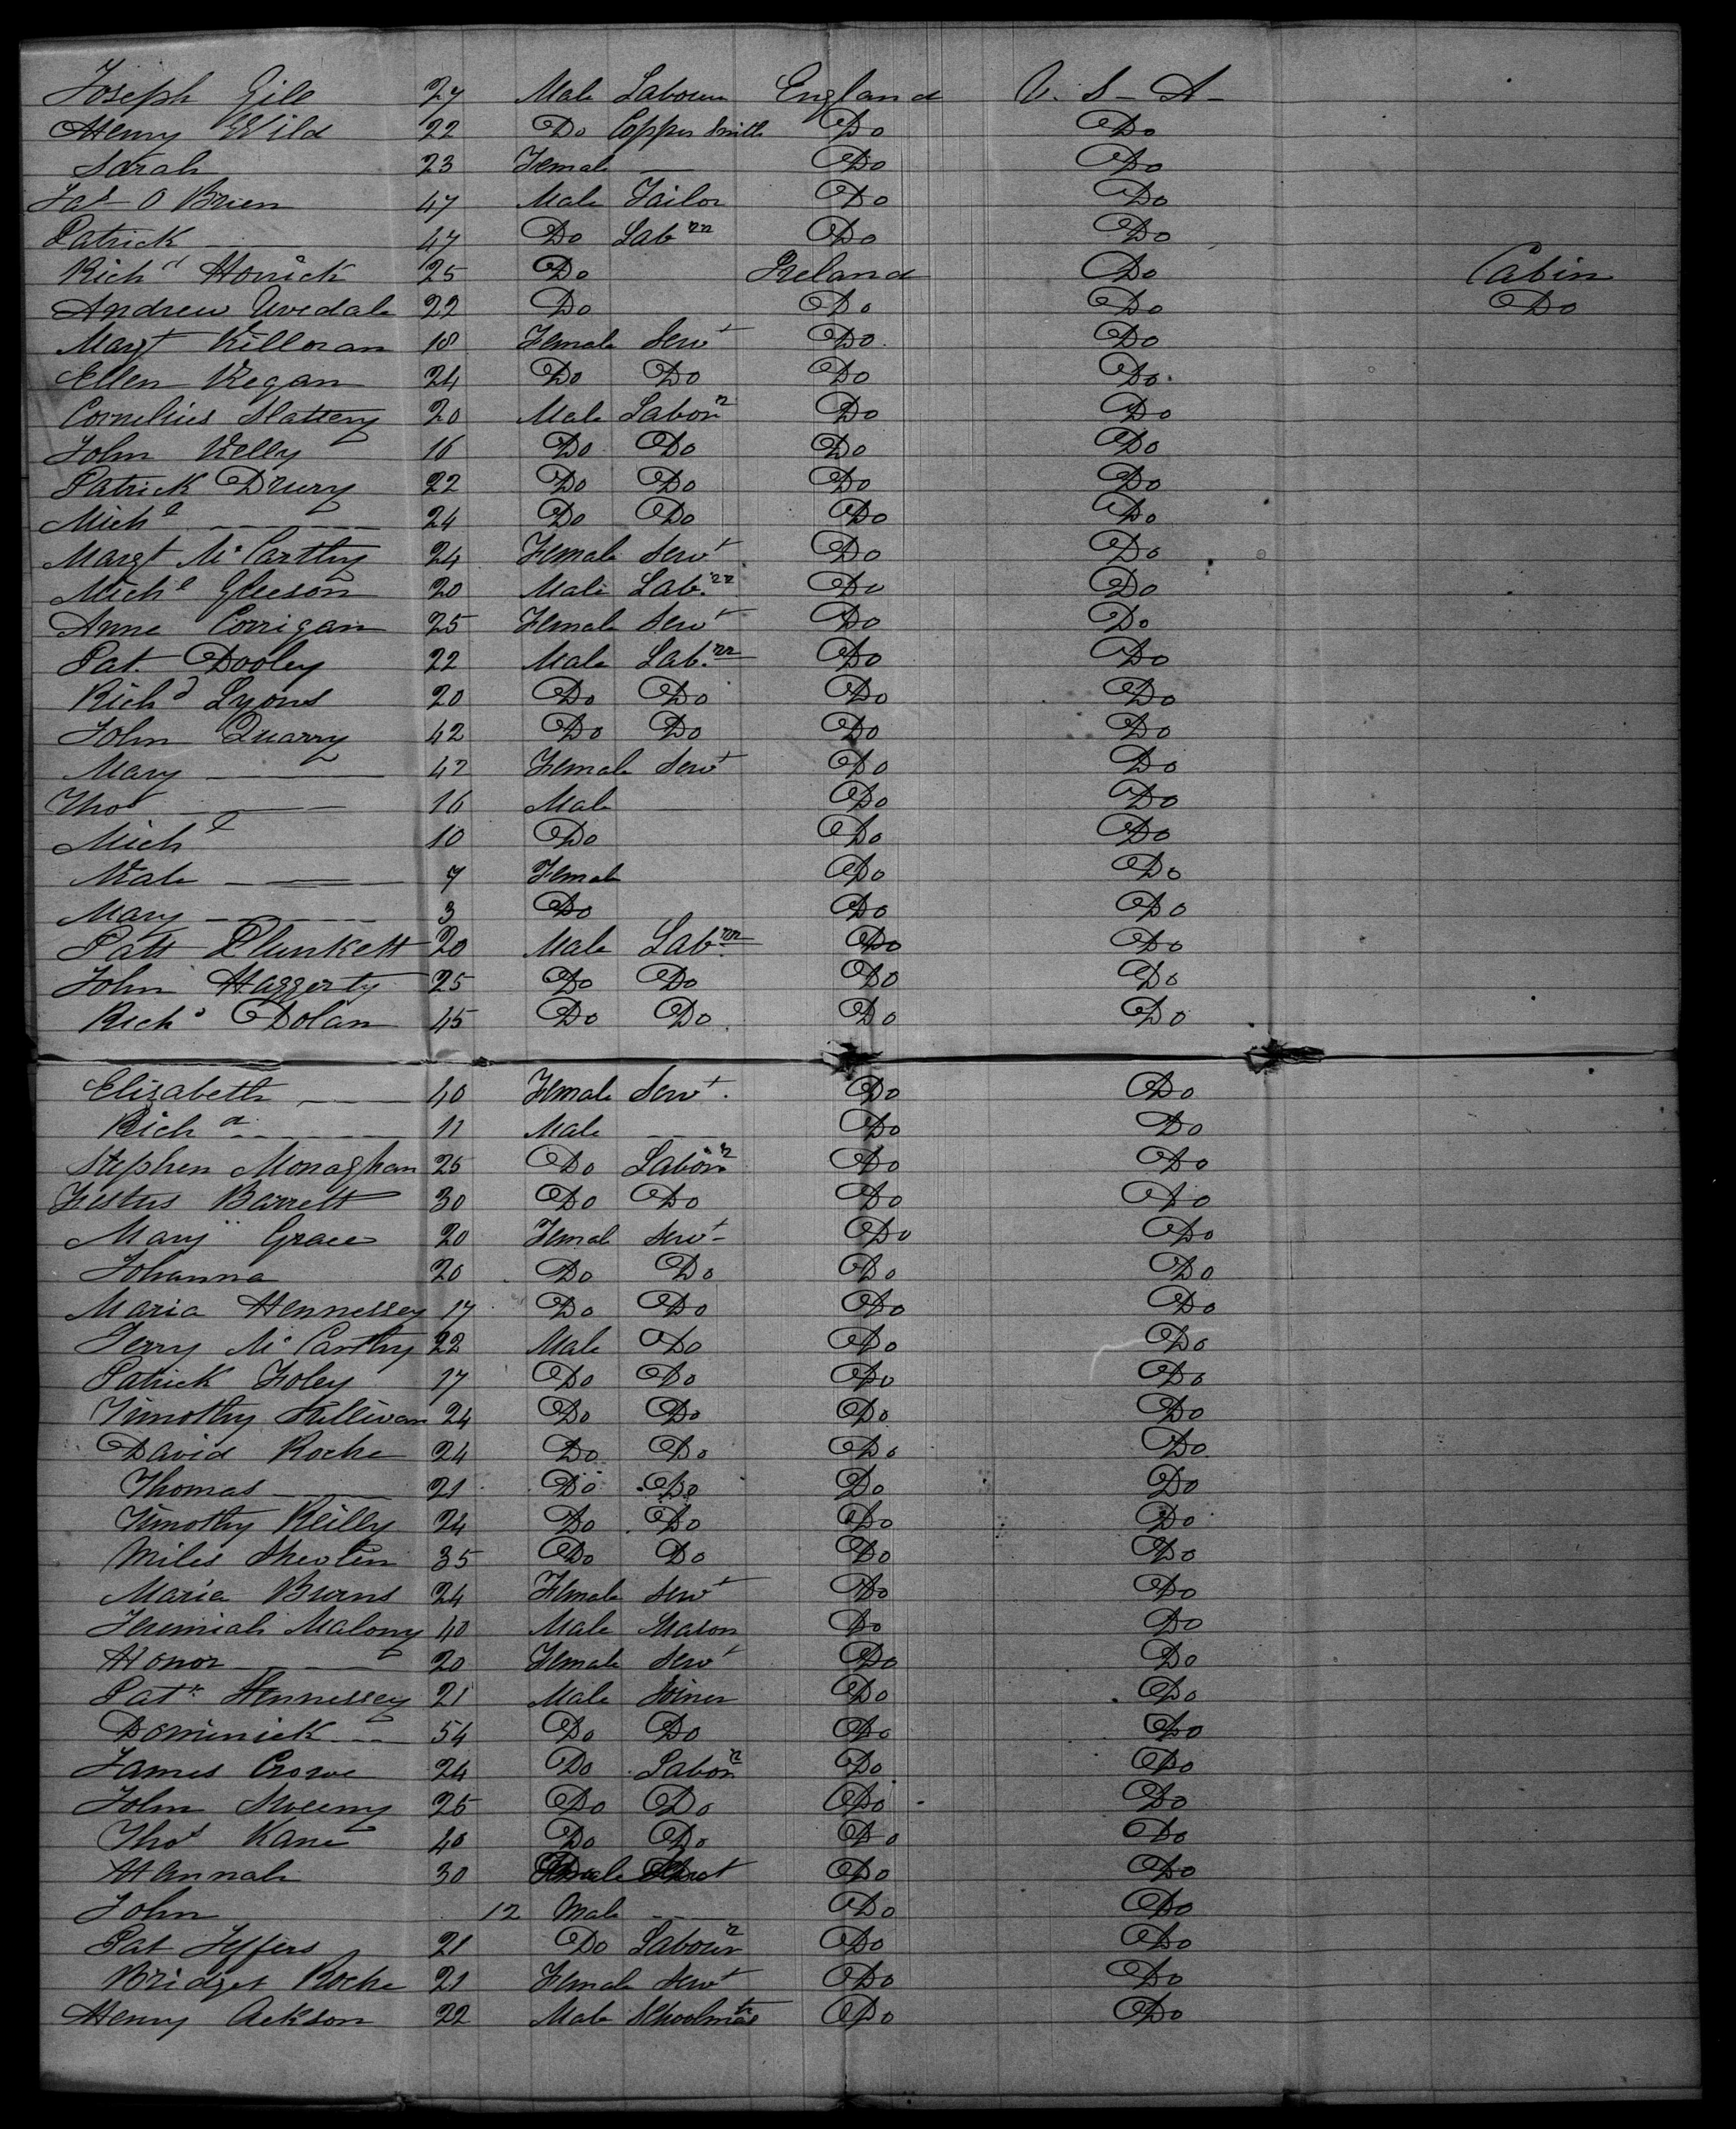 Joseph Gill 27 Male Labourer England U. S - A -
Henry Wild 22 Do Copper Smith Do Do
Sarah 23 Female — Do Do
Jas O Brien 47 Male Tailor Do Do
Patrick — 47 Do Labrr Do Do
Richd Horrick 25 Do Ireland Do Cabin
Andrew Uvedale 22 Do Do Do Do
Margt Killoran 18 Female Servt Do Do
Ellen Kegan 24 Do Do Do Do
Cornelius Slattery 20 Male Labourr Do Do
John Kelly 16 Do Do Do Do
Patrick Drury 22 Do Do Do Do
Michl — 24 Do Do Do Do
Margt McCarthy 24 Female Servt Do Do
Michl Gleeson 20 Male Lab.rr Do Do
Anne Corrigan 25 Female Servt Do Do
Pat Dooley 22 Male Lab.rr Do Do
Richd Lyons 20 Do Do Do Do
John Quarry 42 Do Do Do Do
Mary — 42 Female Servt Do Do
Thos — 16 Male — Do Do
Michl 10 Do Do Do
Kate — 7 Female Do Do
Mary — 3 Do Do Do
Patt Plunkett 20 Male Lab.rr Do Do
John Haggerty 25 Do Do Do Do
Richd Dolan 45 Do Do Do Do
Elizabeth — 40 Female Servt Do Do
Richd — 11 Male — Do Do
Stephen Monaghan 25 Do Labourr Do Do
Festus Barrett 30 Do Do Do Do
Mary Grace 20 Female Servt Do Do
Johanna 20 Do Do Do Do
Maria Hennessey 17 Do Do Do Do
Jerry McCarthy 22 Male Do Do Do
Patrick Foley 17 Do Do Do Do
Timothy Sullivan 24 Do Do Do Do
David Roche 24 Do Do Do Do
Thomas — 21 Do Do Do Do
Timothy Reilly 24 Do Do Do Do
Miles Shevlin 35 Do Do Do Do
Maria Burns 24 Female Servt Do Do
Jeremiah Malony 40 Male Mason Do Do
Honor — 20 Female Servt Do Do
Patk Hennessey 21 Male Joiner Do Do
Dominick — 54 Do Do Do Do
James Crowe 24 Do Labourr Do Do
John Sweeny 25 Do Do Do Do
Thos Kane 40 Do Do Do Do
Hannah 30 Female Servt Do Do
John 12 Male — Do Do
Pat Jeffers 21 Do Labourr Do Do
Bridget Roche 21 Female Servt Do Do
Henry Ackson 22 Male Schoolmastr Do Do